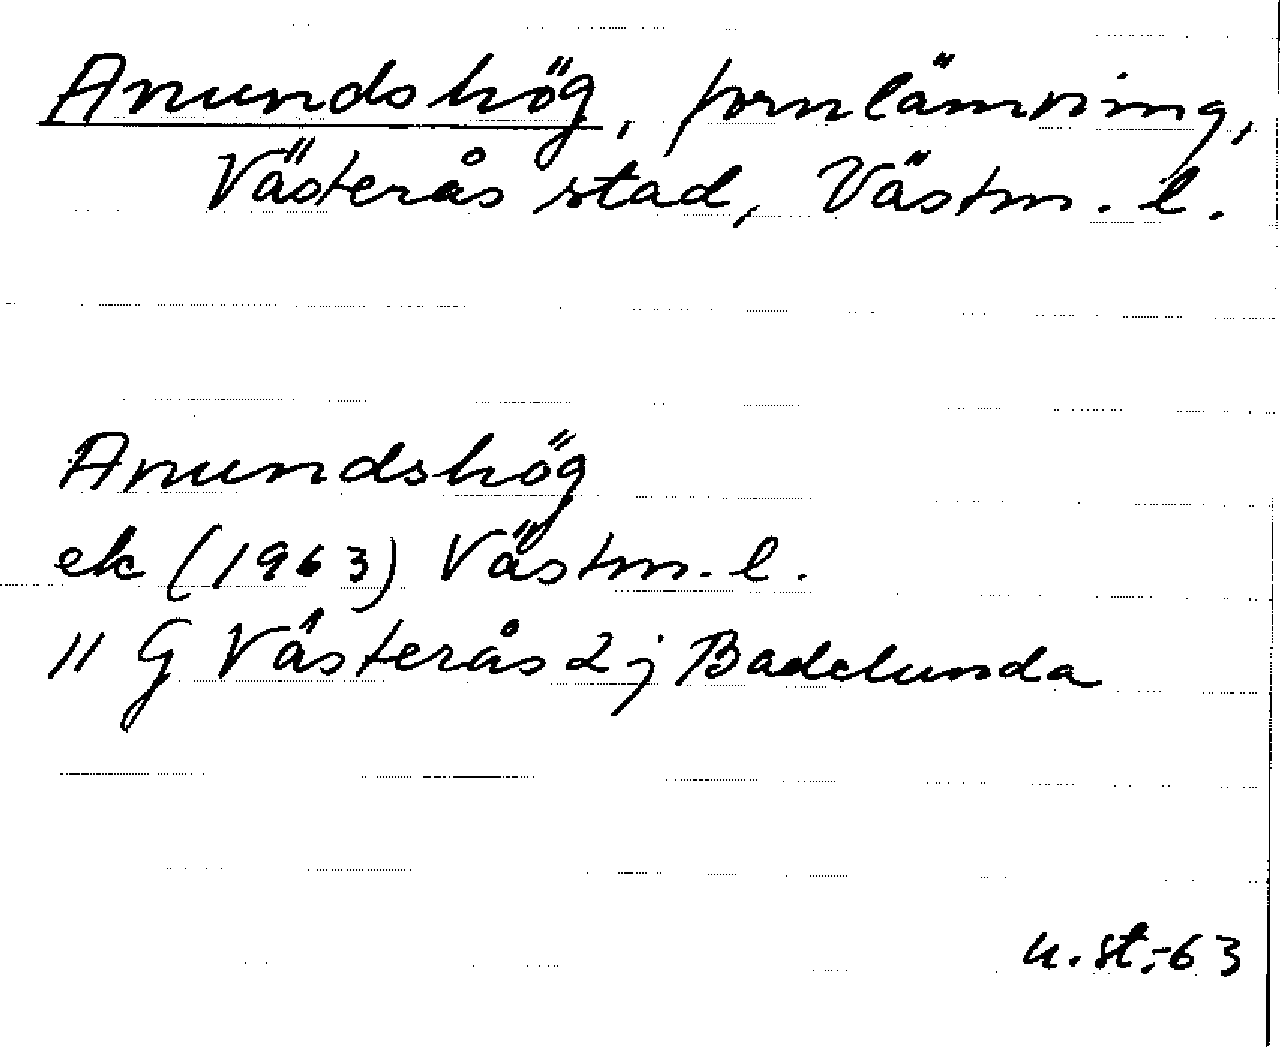 Anundshög, fornlämning,
Västerås stad, Västm. l.
Anundshög
ek (1963) Västm. l.
11 G Västerås 2j Badelunda
u. st. -63